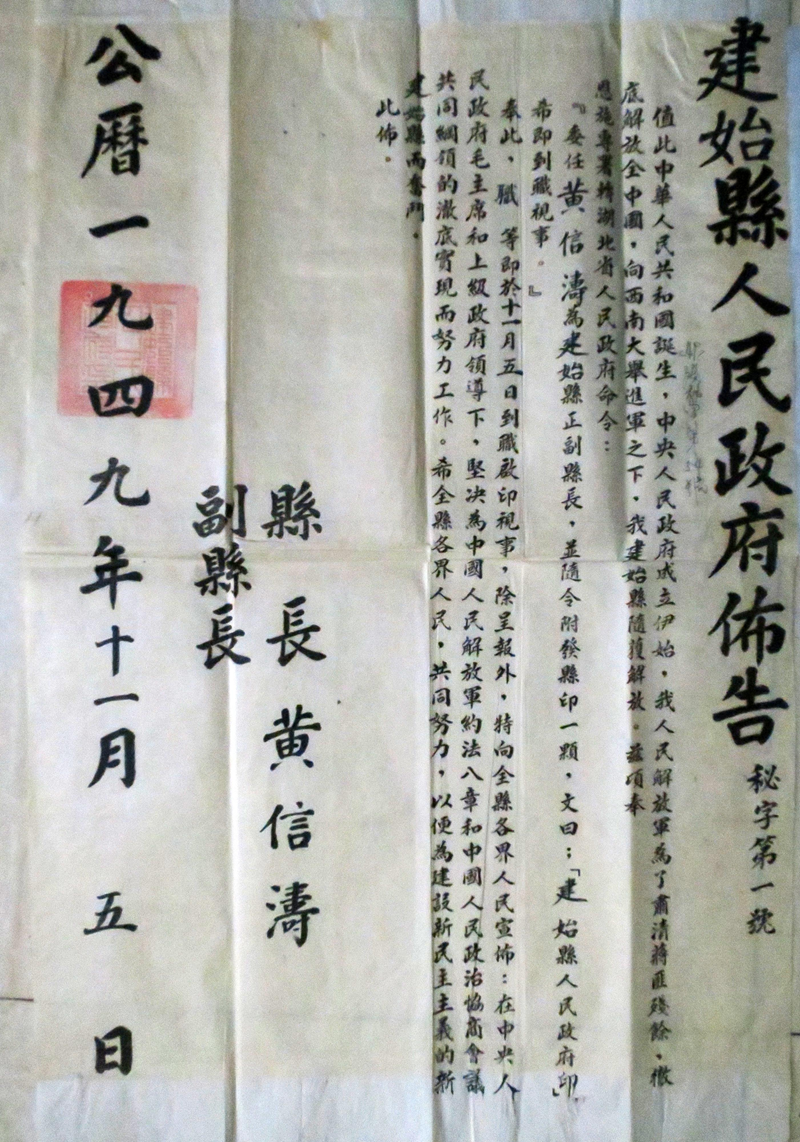 建始縣人民政府佈告
秘字第一號
值此中華人民共和國誕生，中央人民政府成立伊始，我人民解放軍為了肅清蔣匪殘餘，徹
底解放全中國，向西南大舉進軍之下，我建始縣隨獲解放。茲項奉
恩施專署轉湖北省人民政府命令：
『委任黃信濤為建始縣正副縣長，並隨令附發縣印一顆，文曰：「建始縣人民政府印」
希即到職視事。』
奉此，職 等即於十一月五日到職啟印視事，除呈報外，特向全縣各界人民宣佈：在中央人
民政府毛主席和上級政府領導下，堅決為中國人民解放軍約法八章和中國人民政治協商會議
共同綱領的澈底實現而努力工作。希全縣各界人民，共同努力，以便為建設新民主主義的新
建始縣而奮鬥。
此佈。
縣 長 黃信濤
副縣長
公曆一九四九年十一月 五 日